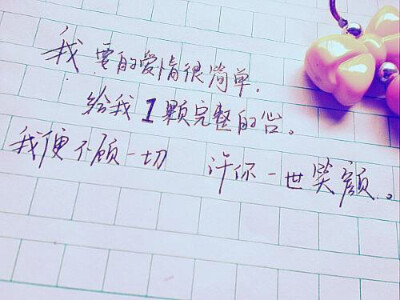 我要的爱情很简单.
给我1颗完整的心。
我便不顾一切 许你一世笑颜。